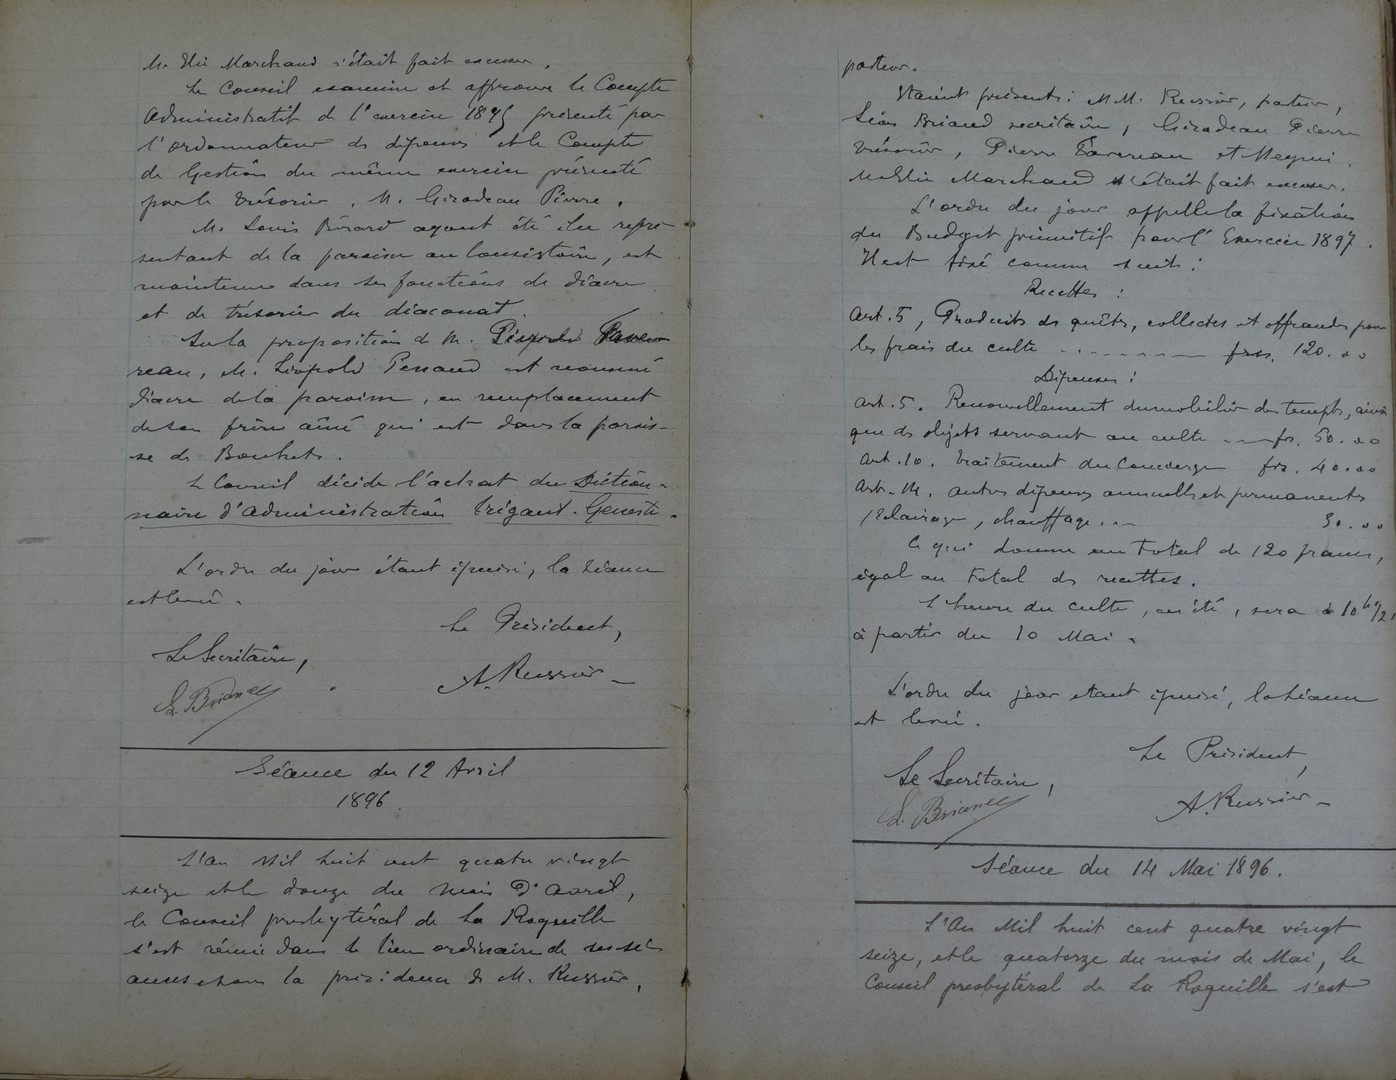 M. Elie Marchand s'était fait excuser.
Le Conseil examine et approuve le Compte
Administratif de l'exercice 1895 présenté par
l'ordonnateur des dépenses et le Compte
de Gestion du même exercice présenté
par le trésorier, M. Girodeau Pierre.
M. Louis Bérard ayant été élu repré-
sentant de la paroisse au Consistoire, est
maintenu dans ses fonctions de diacre
et de trésorier du diaconat.
Sur la proposition de M. Faver-
reau, M. Léopold Penaud est nommé
diacre de la paroisse, en remplacement
de son frère aîné qui est dans la parois-
se de Bonhets.
Le Conseil décide l'achat du Diction-
naire d'administration Frigant-Geneste.
L'ordre du jour étant épuisé, la séance
est levée.
Le Président,
Le Secrétaire,
A. Russier
L. Briand
Séance du 12 Avril
1896.
L'an Mil huit cent quatre vingt
seize et le douze du mois d'avril,
le Conseil presbytéral de La Roquille
s'est réuni dans le lieu ordinaire de ses sé-
ances et sous la présidence de M. Russier,
pasteur.
Etaient présents: MM. Russier, pasteur,
Léon Briand secrétaire, Girodeau Pierre
trésorier, Pierre Favereau et Meynié.
M. Elie Marchand s'était fait excuser.
L'ordre du jour appelle la fixation
du Budget primitif pour l'Exercice 1897.
Il est fixé comme suit:
Recettes:
Art. 5, Produits des quêtes, collectes et offrandes pour
les frais du culte ........ frs. 120.00
Dépenses:
Art. 5. Renouvellement du mobilier des temples, ainsi
que des objets servant au culte ... fs. 50.00
Art. 10. Traitement du Concierge frs. 40.00
Art. 11. autres dépenses annuelles et permanentes
(Eclairage, chauffage... 30.00
Ce qui donne un total de 120 francs,
égal au total des recettes.
L'heure du culte, en été, sera à 10 h 1/2,
à partir du 10 Mai.
L'ordre du jour étant épuisé, la séance
est levée.
Le Président,
Le Secrétaire,
A. Russier
L. Briand
Séance du 14 Mai 1896.
L'An Mil huit cent quatre vingt
seize, et le quatorze du mois de Mai, le
Conseil presbytéral de La Roquille s'est